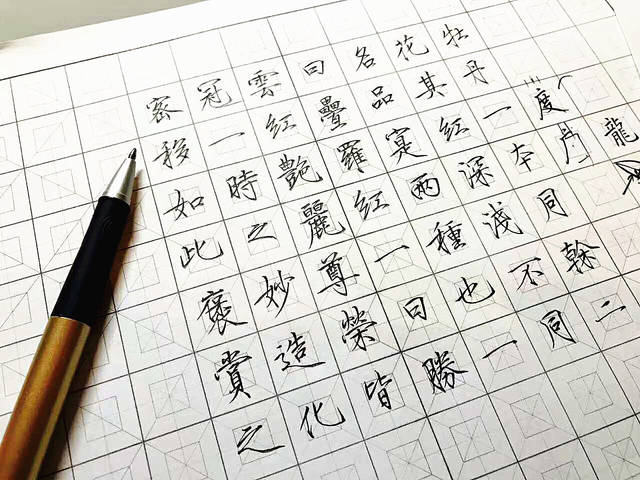 龍
度
牡丹一本同幹二
花其紅深淺不同
各品寞兩種也一
曰疊羅紅一曰勝
雲紅艷麗尊榮皆
冠一時之妙造化
密移如此褒賞之